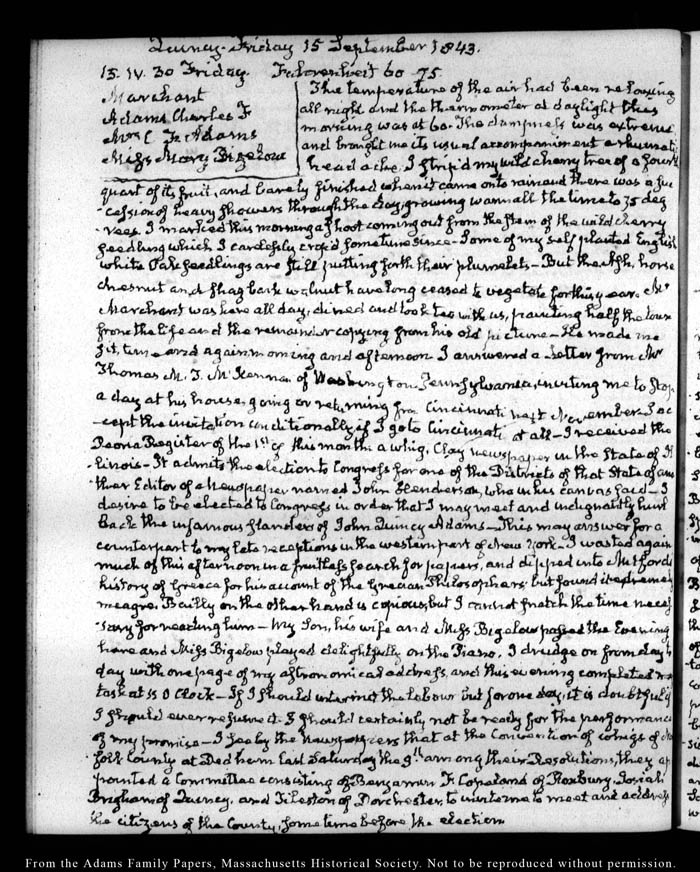 Quincy Friday 15 September 1843.
15. IV. 30 Friday. Fahrenheit 60-75
Marchant
Adams Charles F
Mrs C. F. Adams
Miss Mary Bigelow
The temperature of the air had been relaxing
all night and the thermometer at daylight this
morning was at 60. The dampness was extreme
and brought me its usual accompaniment a rheumatic
headache. I strip'd my wild cherry tree of a fourth
quart of its fruit, and barely finished when it came on to rain and there was a suc
cession of heavy showers through the day, growing warm all the time to 75 deg
rees. I marked this morning a shoot coming out from the stem of the wild cherry
seedling which I carefully crop'd sometime since. Some of my self planted English
white Oak seedlings are still putting forth their plumelets - But the Ash, horse
chesnut and shagbark walnut have long ceased to vegetate for this year. Mr
Marchant was here all day, dined and took tea with us, painting half the time
from the life and the remainder copying from his old picture - He made me
sit, time and again morning and afternoon I answered a Letter from Mr
Thomas M. T. McKennan of Washington Pennsylvania, inviting me to stop
a day at his house, going or returning from Cincinnati next November. I ac
cept the invitation conditionally if I go to Cincinnati at all - I received the
Peoria Register of the 1st of this month a whig, Clay newspaper in the State of Il
linois - It admits the election to Congress for one of the Districts of that State of ano
ther Editor of a Newspaper named John Henderson, who in his canvas said - I
desire to be elected to Congress in order that I may meet and indignantly hurl
back the infamous slanders of John Quincy Adams - This may answer for a
counterpart to my late receptions in the western part of New York - I wasted again
much of this afternoon in a fruitless search for papers, and dipped into Mitford's
history of Greece for his account of the Grecian Philosophers but found it extremely
meagre. Bailly on the other hand is copious, but I cannot snatch the time neces
sary for reading him - My Son, his wife and Miss Bigelow passed the Evening
here and Miss Bigelow played delightfully on the Piano. I drudge on from day to
day with one page of my astronomical address, and this evening completed my
task at 11 O'Clock - If I should intermit the labour but for one day, it is doubtful if
I should ever resume it. I should certainly not be ready for the performance
of my promise - I see by the Newspapers that at the Convention of whigs of Nor
folk County at Dedham last Saturday the 9th among their Resolutions, they ap
pointed a Committee consisting of Benjamin F. Copeland of Roxbury, Josiah
Brigham of Quincy, and Tileston of Dorchester, to invite me to meet and address
the citizens of the County, some time before the election.
From the Adams Family Papers, Massachusetts Historical Society. Not to be reproduced without permission.